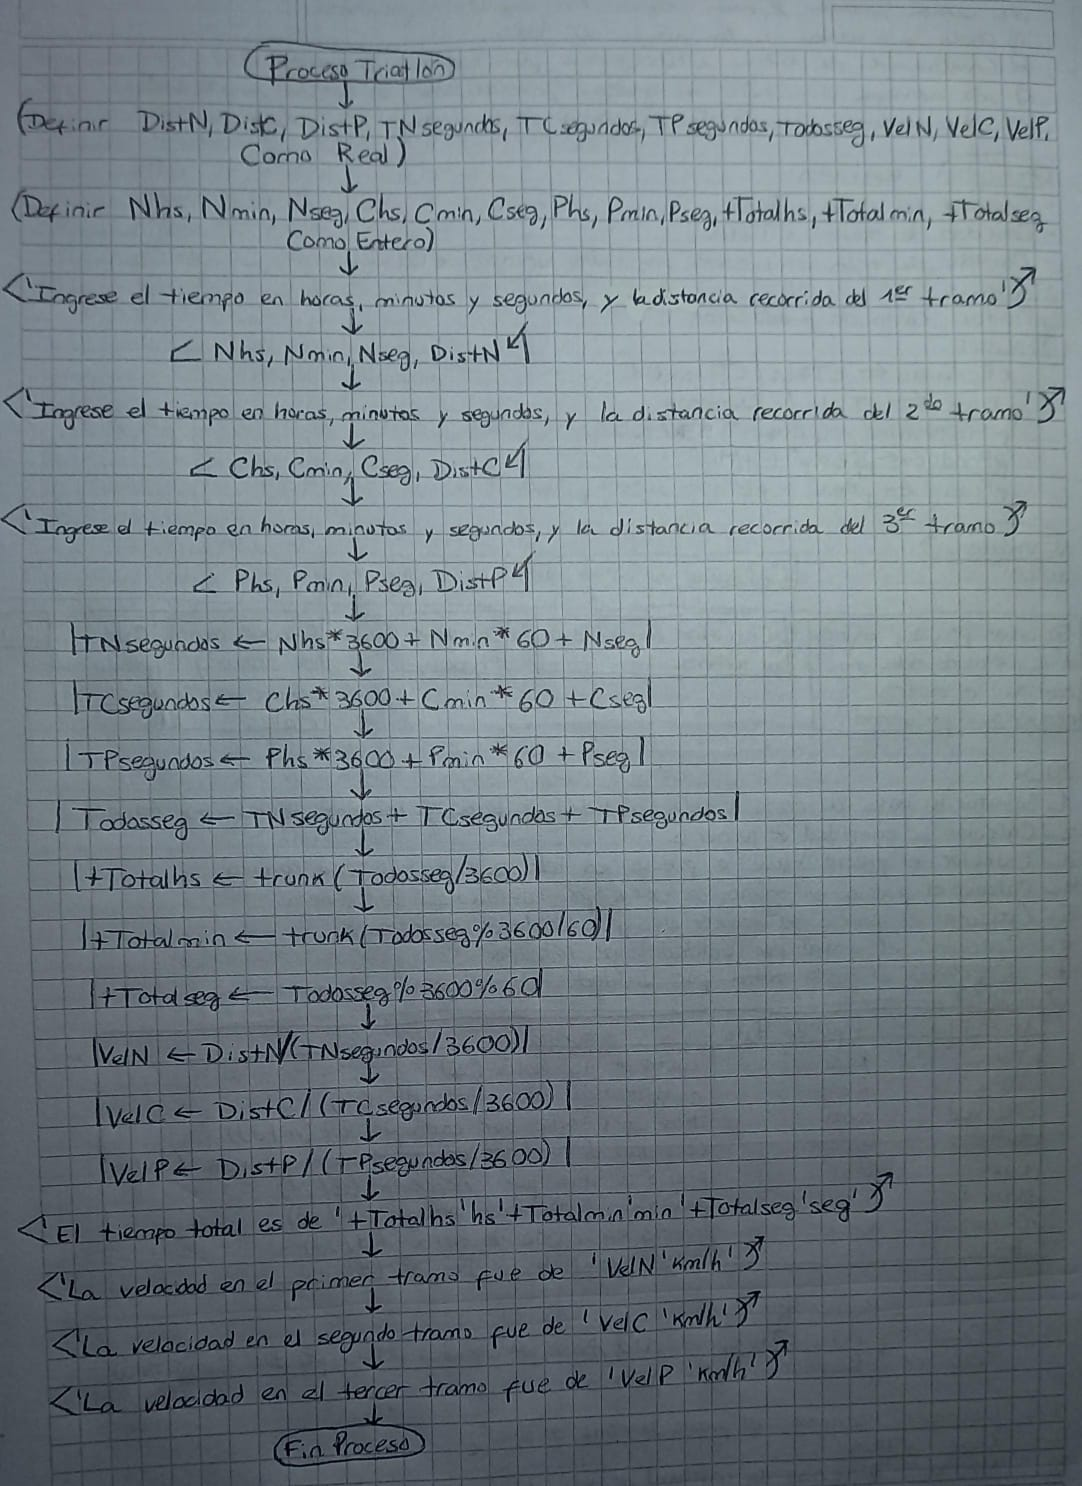 Proceso Triatlón
(Definir DistN, DistC, DistP, TNsegundos, TCsegundos, TPsegundos, Todosseg, VelN, VelC, VelP,
Como Real)
(Definir Nhs, Nmin, Nseg, Chs, Cmin, Cseg, Phs, Pmin, Pseg, tTotalhs, tTotalmin, tTotalseg
Como Entero)
'Ingrese el tiempo en horas, minutos y segundos, y la distancia recorrida del 1er tramo'
Nhs, Nmin, Nseg, DistN
'Ingrese el tiempo en horas, minutos y segundos, y la distancia recorrida del 2do tramo'
Chs, Cmin, Cseg, DistC
'Ingrese el tiempo en horas, minutos y segundos, y la distancia recorrida del 3er tramo
Phs, Pmin, Pseg, DistP
TNsegundos ← Nhs*3600 + Nmin*60 + Nseg
TCsegundos ← Chs*3600 + Cmin*60 + Cseg
TPsegundos ← Phs*3600 + Pmin*60 + Pseg
Todosseg ← TNsegundos + TCsegundos + TPsegundos
tTotalhs ← trunk(Todosseg/3600)
tTotalmin ← trunk(Todosseg%3600/60)
tTotalseg ← Todosseg%3600%60
VelN ← DistN/(TNsegundos/3600)
VelC ← DistC/(TCsegundos/3600)
VelP ← DistP/(TPsegundos/3600)
'El tiempo total es de 'tTotalhs'hs'tTotalmin'min'tTotalseg'seg'
'La velocidad en el primer tramo fue de 'VelN'Km/h'
'La velocidad en el segundo tramo fue de 'VelC'Km/h'
'La velocidad en el tercer tramo fue de 'VelP'Km/h'
Fin Proceso